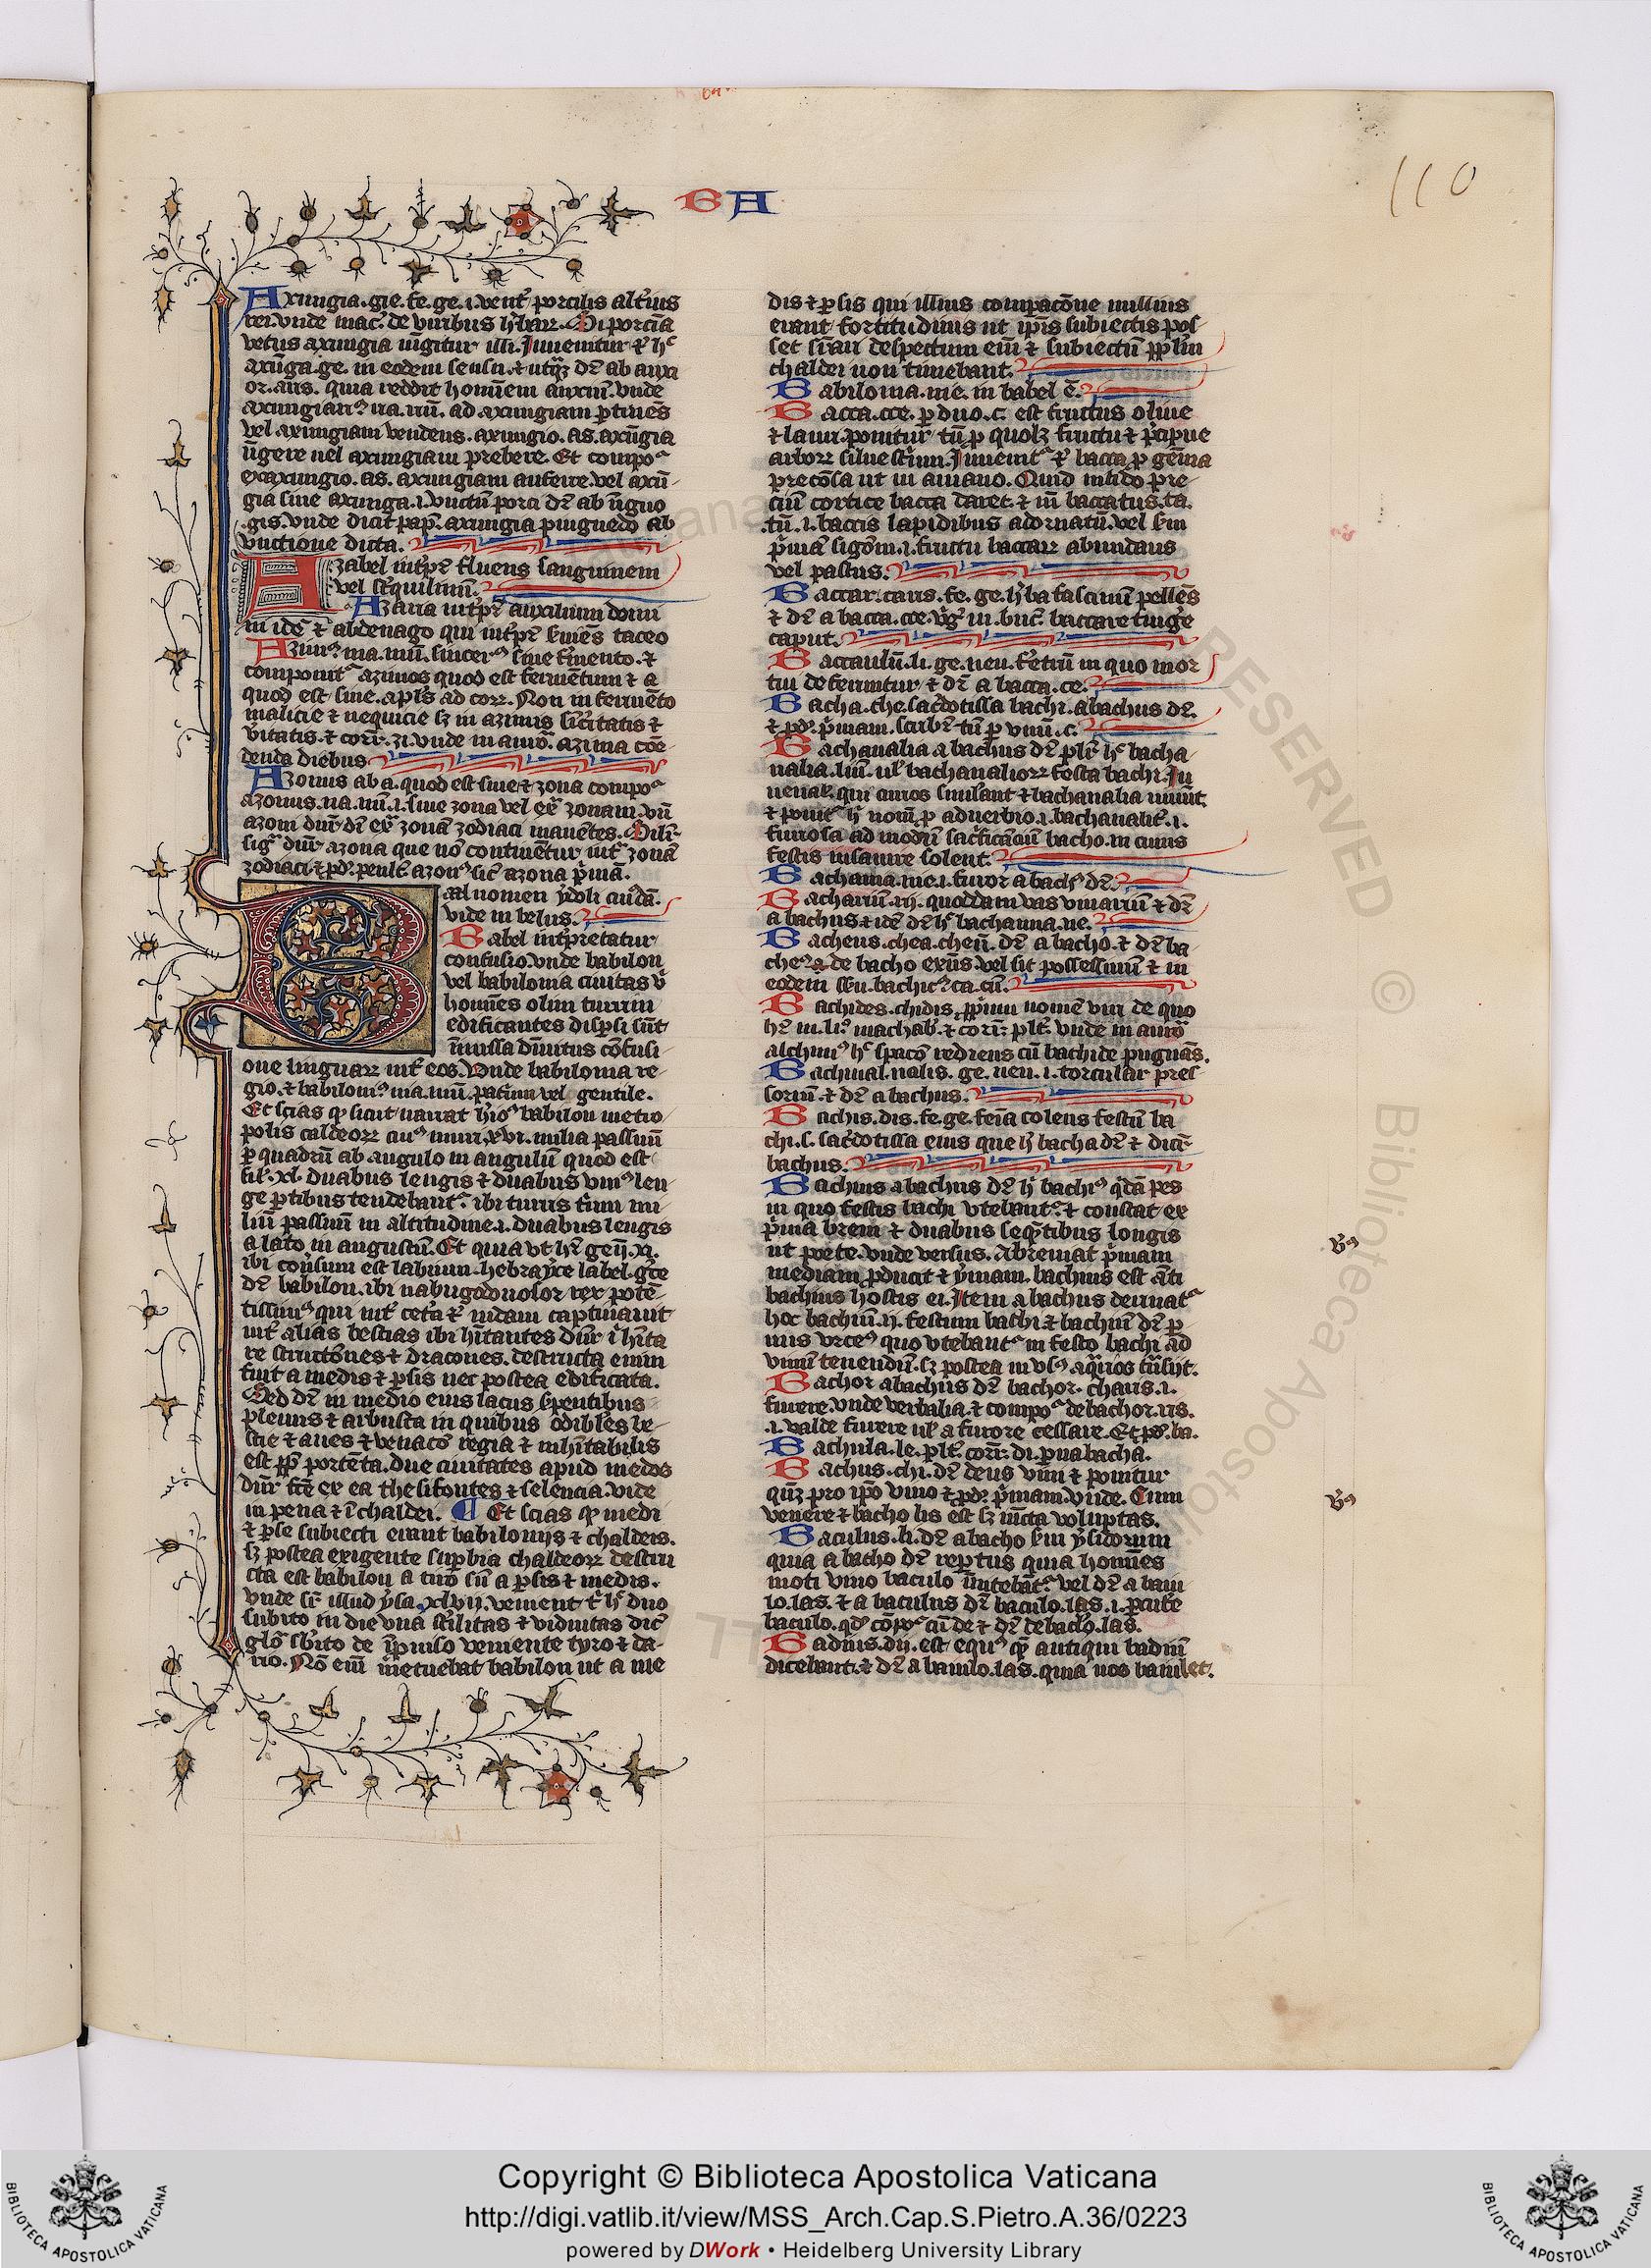 BA
110
Axungia.gie.fe.ge.i.vent᷑ porcilis alt᷑ius
rei.vnde mac᷑.de viribus h᷑baꝝ. Si porcīa
vetus axungia iūgitur illi. Inuenitur ⁊ h᷑
axūga.ge. in eodem sensu.⁊ utqꝫ dr̄ ab auxi
or.aris. quia reddit hominem auxiū.vnde
axungiarꝰ.ria.riū. ad axungiam ꝑtinēs
vel axungiam vendens. axungio.as.axūgia
ūgere uel axungiam prebere. Et compoᷣ
exaxungio.as. axungiam auferre.vel axū-
gia siue axunga.i.vnctū porci dr̄ ab ūguo
gis.vnde dicit pap᷑. axungia pinguedo ab
vnctione dicta.
Azabel int᷑p̄t᷑ fluens sanguinem
vel st᷑quilinū.
Azaria int᷑p̄t᷑ auxilium domī
ni idē ⁊ abdenago qui int᷑p̄t᷑ ẜuiēs taceo
Azimꝰ.ma.mū. sincerꝰ siue f᷑mento.⁊
componit᷑ azimos quod est fermētum ⁊ a
quod est sine.apl̄s ad corꝝ. Non in fermēto
malicie ⁊ nequicie sꝫ in azimis sīcitatis ⁊
v᷑itatis.⁊ corr̄. zi.vnde in auroᷓ. azima coē-
denda diebus
Azonus ab a.quod est sine ⁊ zona compoᷣ
azonus.na.nū.i.sine zona vel ex᷑ zonam.vn̄
azoni dn̄r dī ex᷑ zonā zodiaci manētes. Sili᷑-
sig᷑ dn̄r azona que nō continētur int᷑ zonā
zodiaci.⁊ ꝓdᷓ. penl᷑t᷑ azonꝰ sic᷑ azona p᷑mā.
Baal nomen ydoli cuiusdā.
vide in belus.
Babel int᷑pretatur
confusio.vnde babilon
vel babilonia ciuitas v᷑
homīes olim turrim
edificantes disp᷑si sūt
īmissa dīuitus cōfusi-
one linguaꝝ int᷑ eos. Vnde babilonia re-
gio.⁊ babiloniꝰ nia.niū.pat᷑iū vel gentile.
Et scias ꝙ sicut narrat h᷑ioꝰ babilon metro-
polis caldeoꝝ cuiꝰ muri.xvi.milia passuū
ꝑ quadrū ab angulo in angulū quod est
sil᷑.xl. duabus leugis ⁊ duabus vniꝰ leu-
ge ꝑtibus tendebant᷑. ibi turris t᷑um mi-
liū passuū in altitudine.i. duabus leugis
a lato in angustū. Et quia vt hr̄ geñ.xi.
ibi confusum est labium. hebrayce label. g᷑ce
dr̄ babilon.ibi nabugodonosor rex potē-
tissimꝰ qui int᷑ cet᷑a ⁊ iudam captiuauit
int᷑ alias bestias ibi hītantes dn̄r ī hīta
re structōnes ⁊ dracones. destructa enim
fuit a medis ⁊ ꝑsis nec postea edificata.
Sed dr̄ in medio eius lacus ẜpentibus
plenus ⁊ arbusta in quibus odibiles be-
stie ⁊ aues ⁊ venatō regia ⁊ inhītabilis
est ꝓpt᷑ portēta.due ciuitates apud medos
dn̄r fc̄e ex ea thesifontes ⁊ selencia.vide
in pena ⁊ ī chaldei. ¶ Et scias ꝙ medi
⁊ ꝑse subiecti erant babilonijs ⁊ chaldeis.
sꝫ postea exigente suꝑbia chaldeoꝝ destru
cta est babilon a tiro siū a ꝑsis ⁊ medis.
vnde sr̄ illud ysa.xlvij.venient t᷑ h᷑ duo
subito in die vna st᷑ilitas ⁊ viduitas dic᷑
glō sb᷑ito de īprouiso veniente tyro ⁊ da-
rio. Nō eni᷑ metuebat babilon ut a me
dis ⁊ ꝑsis qui illius comparatōne nullius
erant fortitudinis ut ip̄is subiectis pos-
set sr̄ari despectum eni᷑ ⁊ subiectū pp̄lm
chaldei non timebant.
Babilonia.nie. in babel ē.
Bacca.cce. ꝑ duo.c. est fructus oliue
⁊ lauri.ponitur tn̄ p quolꝫ fructu ⁊ p᷑cipue
arboꝝ siluestrium. Inuenit᷑ ⁊ bacca ꝓ gēma
precōsa ut in auiano. Quid nitido pre-
ciū cortice bacca daret.⁊ in̄ baccatus.ta.
tū.i.baccis lapidibus adornatū.vel ẜm
p᷑mā sigōm.i.fructu baccaꝝ abundans
vel pastus.
Baccar.caris. fe.ge.h᷑ba fascinū pellēs
⁊ dr̄ a bacca.cce.v᷑g᷑ in buc᷑. baccare cing᷑e
caput.
Baccaulū.li. ge.neu. f᷑etrū in quo mor
tui deferuntur ⁊ dr̄ a bacca.ce.
Bacha.che.sac᷑dotissa bachi.a bachus dr̄.
⁊ ꝓdᷓ. p᷑mam.scrib᷑ tn̄ ꝑ vnū.c.
Bachanalia a bachus dr̄ plr̄ h᷑ bacha
nalia.liū. ul᷑ bachanalioꝝ festa bachi. Iu
uenal᷑. qui curios simlant ⁊ bachanalia uiuūt
⁊ ponit᷑ h᷑ nom̄ ꝓ aduerbio.i.bachanalit᷑.i.
furiosa ad modū sac᷑ficātiū bacho.in cuius
festis insanire solent.
Bachania.nie.i.furor a bachꝰ dr̄.
Bachariū.rij. quoddam vas vinariū ⁊ dr̄
a bachus.⁊ idē dr̄ h᷑ bachanna.ne.
Bacheus.chea.cheū. dr̄ a bacho.⁊ dr̄ ba
cheꝰ de bacho exn̄s.vel sit possessiuū ⁊ in
eodem sēu.bachicꝰ.ca.cū.
Bachides.chidis.ꝓprium nomē viri de quo
hr̄ in.liꝰ machab᷑.⁊ corr̄: plt᷑. vnde in auroᷓ
alchimꝰ h᷑ spacō rediens cū bachide pugnās.
Bachinal.nalis. ge.neu.i.torcular pres-
sorium.⁊ dr̄ a bachus.
Bachis.dis.fe.ge.feīa colens festū ba
chi.ſ.sac᷑dotissa eius que ⁊ bacha dr̄ ⁊ dicit᷑
bachus.
Bachius a bachus dr̄ h᷑ bachiꝰ q᷑dā pes
in quo festis bachi vtebant᷑.⁊ constat ex
p᷑ma breui ⁊ duabus seq᷑ntibus longis
ut poete. vnde versus. Abreuiat p᷑mam
mediam ꝓducit ⁊ ymam. bachius est āti
bachius hostis ei. Item a bachus deriuat᷑
hoc bachiū.ij. festum bachi ⁊ bachiū dr̄ ꝑ-
uus vrceꝰ quo vtebant᷑ in festo bachi ad
vinū tenendū.sꝫ postea in vsꝰ aq᷑rios tn̄sijt.
Bachor a bachus dr̄ bachor. charis.i.
furere.vnde verbalia.⁊ compoᷣ debachor.ris.
.i.valde furere ul᷑ a furore cessare. Et ꝓdᷓ. ba.
Bachula.le.plt᷑.corr̄: di.ꝑua bacha.
Bachus.chi.dr̄ deus vini ⁊ ponitur
qn̄qꝫ pro ip̄o vino ⁊ ꝓdᷓ. p᷑mam.vnde. Cum
venere ⁊ bacho lis est sꝫ iūcta voluptas.
Baculus.li.dr̄ a bacho ẜm ysidorum
quia a bacho dr̄ reꝑtus quia homīes
moti vino baculo īnitebāt᷑. vel dr̄ a baiu
lo.las. ⁊ a baculus dr̄ baculo.las.i.ꝑcut᷑e
baculo.qd᷑ cōpoᷣ cū de ⁊ dr̄ debaclo.las.
Badius.dij. est equꝰ quē antiqui badiū
dicebant.⁊ dr̄ a baiulo.las.quia nos baiulet.
Copyright © Biblioteca Apostolica Vaticana
http://digi.vatlib.it/view/MSS_Arch.Cap.S.Pietro.A.36/0223
powered by DWork • Heidelberg University Library
BIBLIOTECA APOSTOLICA VATICANA
BIBLIOTECA APOSTOLICA VATICANA